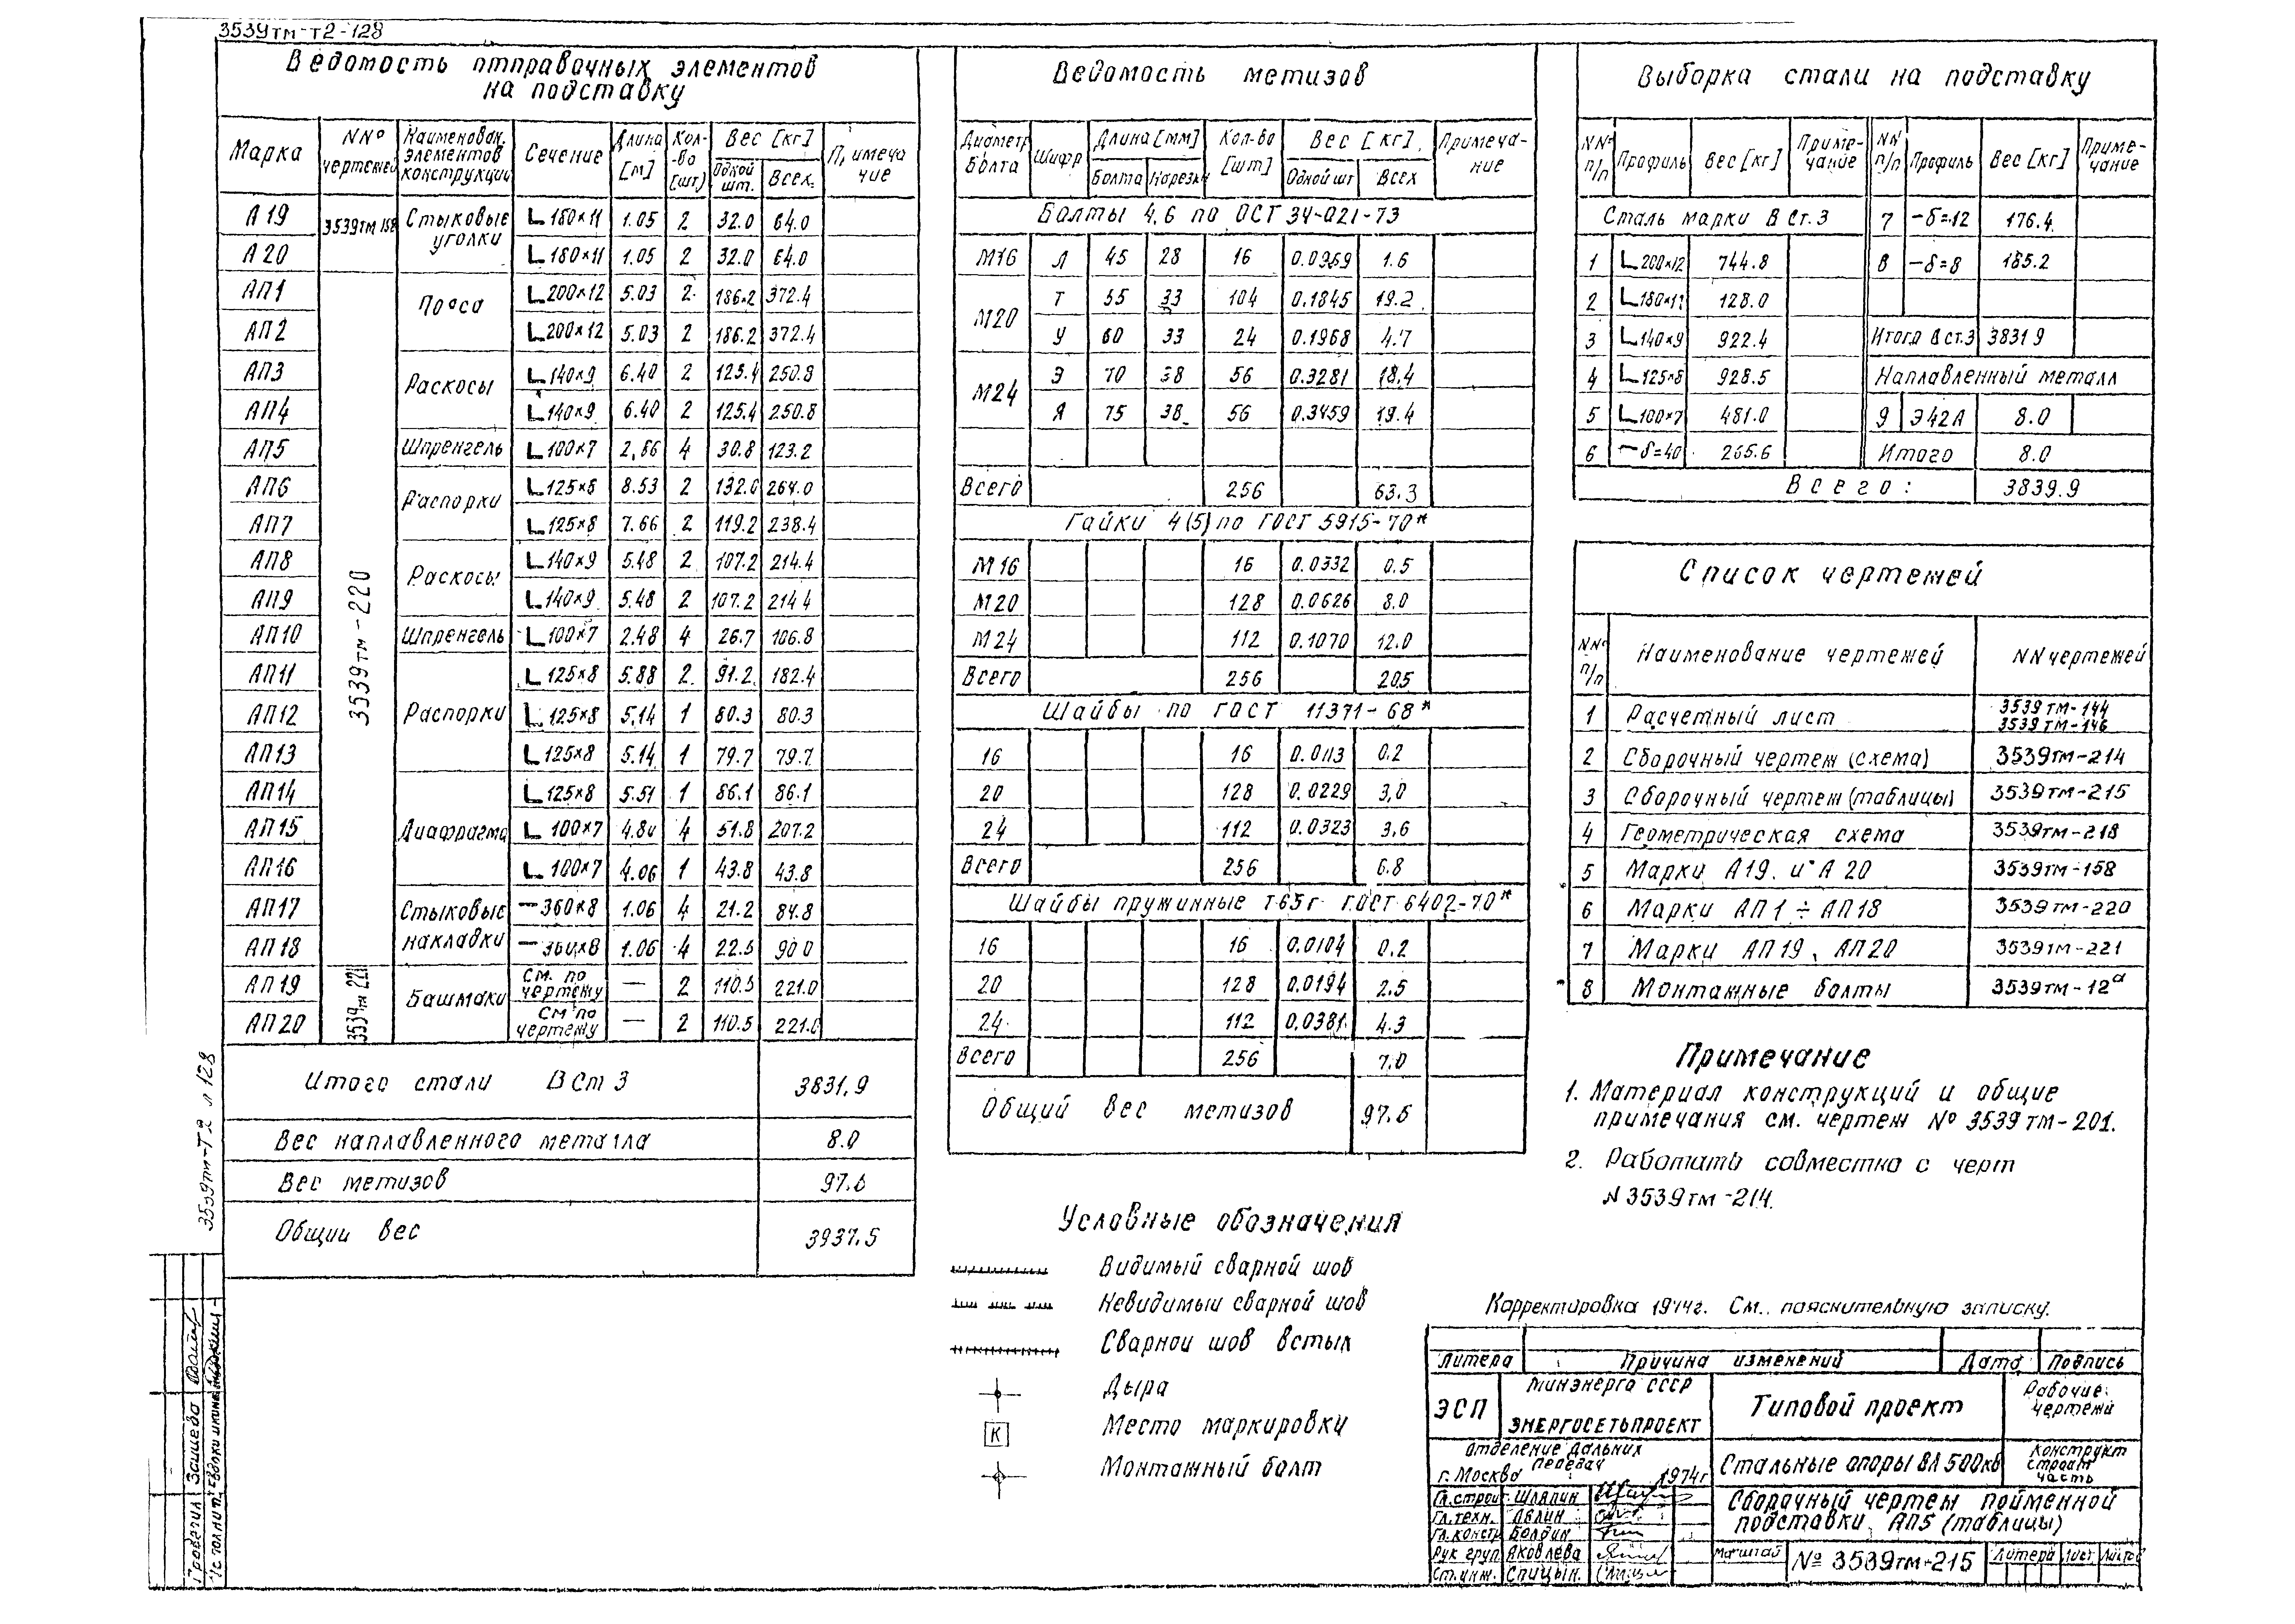 3539тм-т2-128
Ведомость отправочных элементов
на подставку
Марка | NNº чертежей | Наименован. элементов конструкции | Сечение | Длина [м] | Кол-во (шт) | Вес [кг] Одной шт. | Всех. | Примечание
А19 | 3539тм 158 | Стыковые уголки | L 180×11 | 1.05 | 2 | 32.0 | 64.0
А20 | L 180×11 | 1.05 | 2 | 32.0 | 64.0
АП1 | 3539тм-220 | Пояса | L 200×12 | 5.03 | 2 | 186.2 | 372.4
АП2 | L 200×12 | 5.03 | 2 | 186.2 | 372.4
АП3 | Раскосы | L 140×9 | 6.40 | 2 | 125.4 | 250.8
АП4 | L 140×9 | 6.40 | 2 | 125.4 | 250.8
АП5 | Шпренгель | L 100×7 | 2,86 | 4 | 30.8 | 123.2
АП6 | Распорки | L 125×8 | 8.53 | 2 | 132.0 | 264.0
АП7 | L 125×8 | 7.66 | 2 | 119.2 | 238.4
АП8 | Раскосы | L 140×9 | 5.48 | 2 | 107.2 | 214.4
АП9 | L 140×9 | 5.48 | 2 | 107.2 | 214.4
АП10 | Шпренгель | L 100×7 | 2.48 | 4 | 26.7 | 106.8
АП11 | Распорки | L 125×8 | 5.88 | 2 | 91.2 | 182.4
АП12 | L 125×8 | 5,14 | 1 | 80.3 | 80.3
АП13 | L 125×8 | 5.14 | 1 | 79.7 | 79.7
АП14 | Диафрагма | L 125×8 | 5.51 | 1 | 86.1 | 86.1
АП15 | L 100×7 | 4.80 | 4 | 51.8 | 207.2
АП16 | L 100×7 | 4.06 | 1 | 43.8 | 43.8
АП17 | Стыковые накладки | -360×8 | 1.06 | 4 | 21.2 | 84.8
АП18 | -360×8 | 1.06 | 4 | 22.5 | 90 0
АП19 | 3539тм 221 | Башмаки | См. по чертежу | — | 2 | 110.5 | 221.0
АП20 | См по чертежу | — | 2 | 110.5 | 221.0
Итого стали ВСт 3 | 3831,9
Вес наплавленного металла | 8.0
Вес метизов | 97.6
Общий вес | 3937.5
3539тм-Т2 л 128
Проверил Зашиева
Ведомость метизов
Диаметр болта | Шифр | Длина [мм] Болта | Нарезки | Кол-во [шт] | Вес [кг]. Одной шт | Всех | Примечание
Болты 4.6 по ОСТ 34-021-73
М16 | Л | 45 | 28 | 16 | 0.0969 | 1.6
М20 | Т | 55 | 33 | 104 | 0.1845 | 19.2
У | 60 | 33 | 24 | 0.1968 | 4.7
М24 | Э | 70 | 38 | 56 | 0.3281 | 18.4
Я | 75 | 38 | 56 | 0.3459 | 19.4
Всего | 256 | 63.3
Гайки 4(5) по ГОСТ 5915-70*
М16 | 16 | 0.0332 | 0.5
М20 | 128 | 0.0626 | 8.0
М24 | 112 | 0.1070 | 12.0
Всего | 256 | 20.5
Шайбы по ГОСТ 11371-68*
16 | 16 | 0.0113 | 0.2
20 | 128 | 0.0229 | 3,0
24 | 112 | 0.0323 | 3,6
Всего | 256 | 6.8
Шайбы пружинные т65г ГОСТ 6402-70*
16 | 16 | 0.0104 | 0.2
20 | 128 | 0.0194 | 2.5
24 | 112 | 0.0381 | 4.3
Всего | 256 | 7.0
Общий вес метизов | 97.6
Условные обозначения
Видимый сварной шов
Невидимый сварной шов
Сварной шов встык
Дыра
К Место маркировки
Монтажный болт
Выборка стали на подставку
NNº п/п | Профиль | Вес [кг] | Примечание | NN п/п | Профиль | Вес [кг] | Примечание
Сталь марки В Ст. 3 | 7 | -δ=12 | 176.4
1 | L 200×12 | 744.8 | 8 | -δ=8 | 185.2
2 | L 180×11 | 128.0
3 | L 140×9 | 922.4 | Итого В ст.3 | 3831 9
4 | L 125×8 | 928.5 | Наплавленный металл
5 | L 100×7 | 481.0 | 9 | Э42А | 8.0
6 | -δ=40 | 265.6 | Итого | 8.0
Всего: | 3839.9
Список чертежей
NNº п/п | Наименование чертежей | NN чертежей
1 | Расчетный лист | 3539тм-144 3539тм-146
2 | Сборочный чертеж (схема) | 3539тм-214
3 | Сборочный чертеж (таблицы) | 3539тм-215
4 | Геометрическая схема | 3539тм-218
5 | Марки А19. и А 20 | 3539тм-158
6 | Марки АП1 ÷ АП18 | 3539тм-220
7 | Марки АП19, АП20 | 3539тм-221
8 | Монтажные болты | 3539тм-12а
Примечание
1. Материал конструкций и общие
примечания см. чертеж Nº 3539тм-201.
2. Работать совместно с черт
N 3539тм-214.
Корректировка 1974г. См. пояснительную записку.
Литера | Причина изменений | Дата | Подпись
ЭСП | Минэнерго СССР ЭНЕРГОСЕТЬПРОЕКТ | Типовой проект | Рабочие чертежи
Отделение дальних передач
г. Москва 1974г
Стальные опоры ВЛ 500кв | Конструкт строит часть
Гл. строит. Шляпин
Гл. техн.
Гл. констр Болдин
Рук груп. Яковлева
Ст. инж. Спицын.
Сборочный чертеж пойменной
подставки АП5 (таблицы)
Масштаб | Nº 3539тм-215 | Литера | Лист | Листов